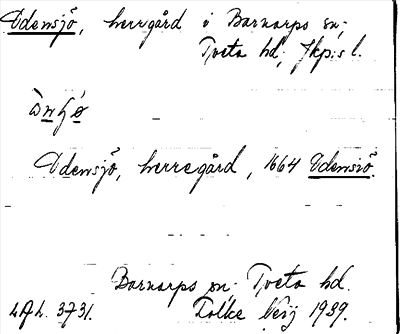 Odensjö, herrgård i Barnarps sn,
Tveta hd, Jkp:s l.
Odensjö, herregård, 1664 Odensiö.
Barnarps sn. Tveta hd.
LAL. 3731. Folke Neij 1939.